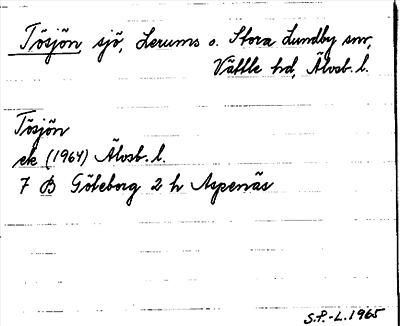 Tösjön, sjö, Lerums o. Stora Lundby snr,
Vättle hd, Älvsb. l.
Tösjön
ek (1964) Älvsb. l.
7 B Göteborg 2 h Aspenäs
S.P.-L. 1965